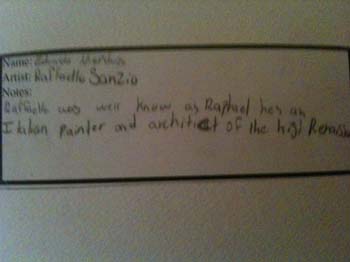 Name: Eduardo
Artist: Raffaello Sanzio
Notes:
Raffaello was well know as Raphael hes an
Italian painter and architect of the high Renaissa